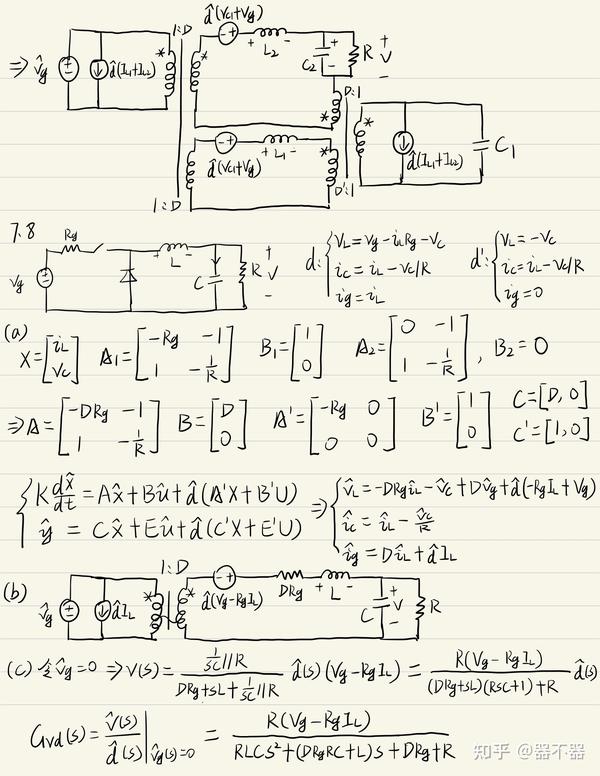 1:D
d̂(Vc1+Vg)
- +
+ L2 -
C2
+
-
R
+
V
-
⇒ v̂g
d̂(IL1+IL2)
D:1
- +
d̂(Vc1+Vg)
+ L1 -
d̂(IL1+IL2)
C1
1:D
D':1
7.8
Rg
+ L -
Vg
C
R
+
V
-
d: { VL=Vg-iLRg-Vc
iC=iL-Vc/R
ig=iL
d': { VL=-Vc
iC=iL-Vc/R
ig=0
(a) X=[iL; Vc] A1=[-Rg -1; 1 -1/R] B1=[1; 0] A2=[0 -1; 1 -1/R], B2=0
⇒A=[-DRg -1; 1 -1/R] B=[D; 0] A'=[-Rg 0; 0 0] B'=[1; 0] C=[D, 0]
C'=[1,0]
{ K dx̂/dt = Ax̂+Bû+d̂(A'X+B'U)
ŷ = Cx̂+Eû+d̂(C'X+E'U)
⇒ { v̂L=-DRgîL-v̂c+Dv̂g+d̂(-RgIL+Vg)
îc=îL-v̂c/R
îg=DîL+d̂IL
(b)
1:D
v̂g
d̂IL
- +
d̂(Vg-RgIL)
DRg
+ L -
C
+
V
-
R
(c) 令v̂g=0 ⇒V(s)= (1/sC//R)/(DRg+sL+1/sC//R) d̂(s)(Vg-RgIL) = R(Vg-RgIL)/((DRg+sL)(RSC+1)+R) d̂(s)
Gvd(s)= v̂(s)/d̂(s)|v̂g(s)=0 = R(Vg-RgIL)/(RLCS²+(DRgRC+L)S+DRg+R)
知乎 @器不器